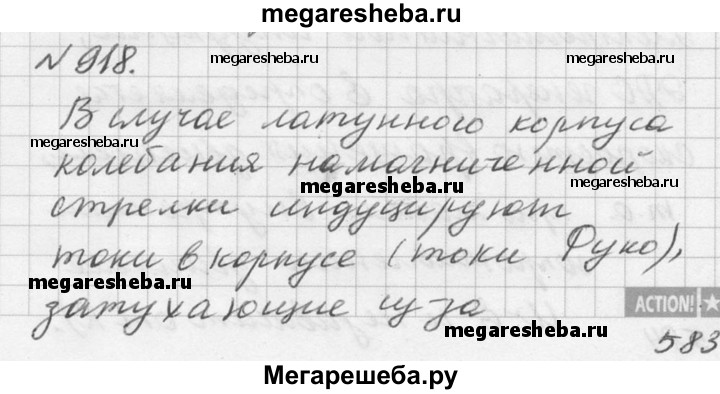 megaresheba.ru
N 918.
megaresheba.ru
megaresheba.ru
В случае латунного корпуса
megaresheba.ru
колебания намагниченной
megaresheba.ru
megaresheba.ru
стрелки индуцируют
токи в корпусе (токи Фуко),
megaresheba.ru
затухающие из-за
ACTION!
megaresheba.ru
583
Мегарешеба.ру